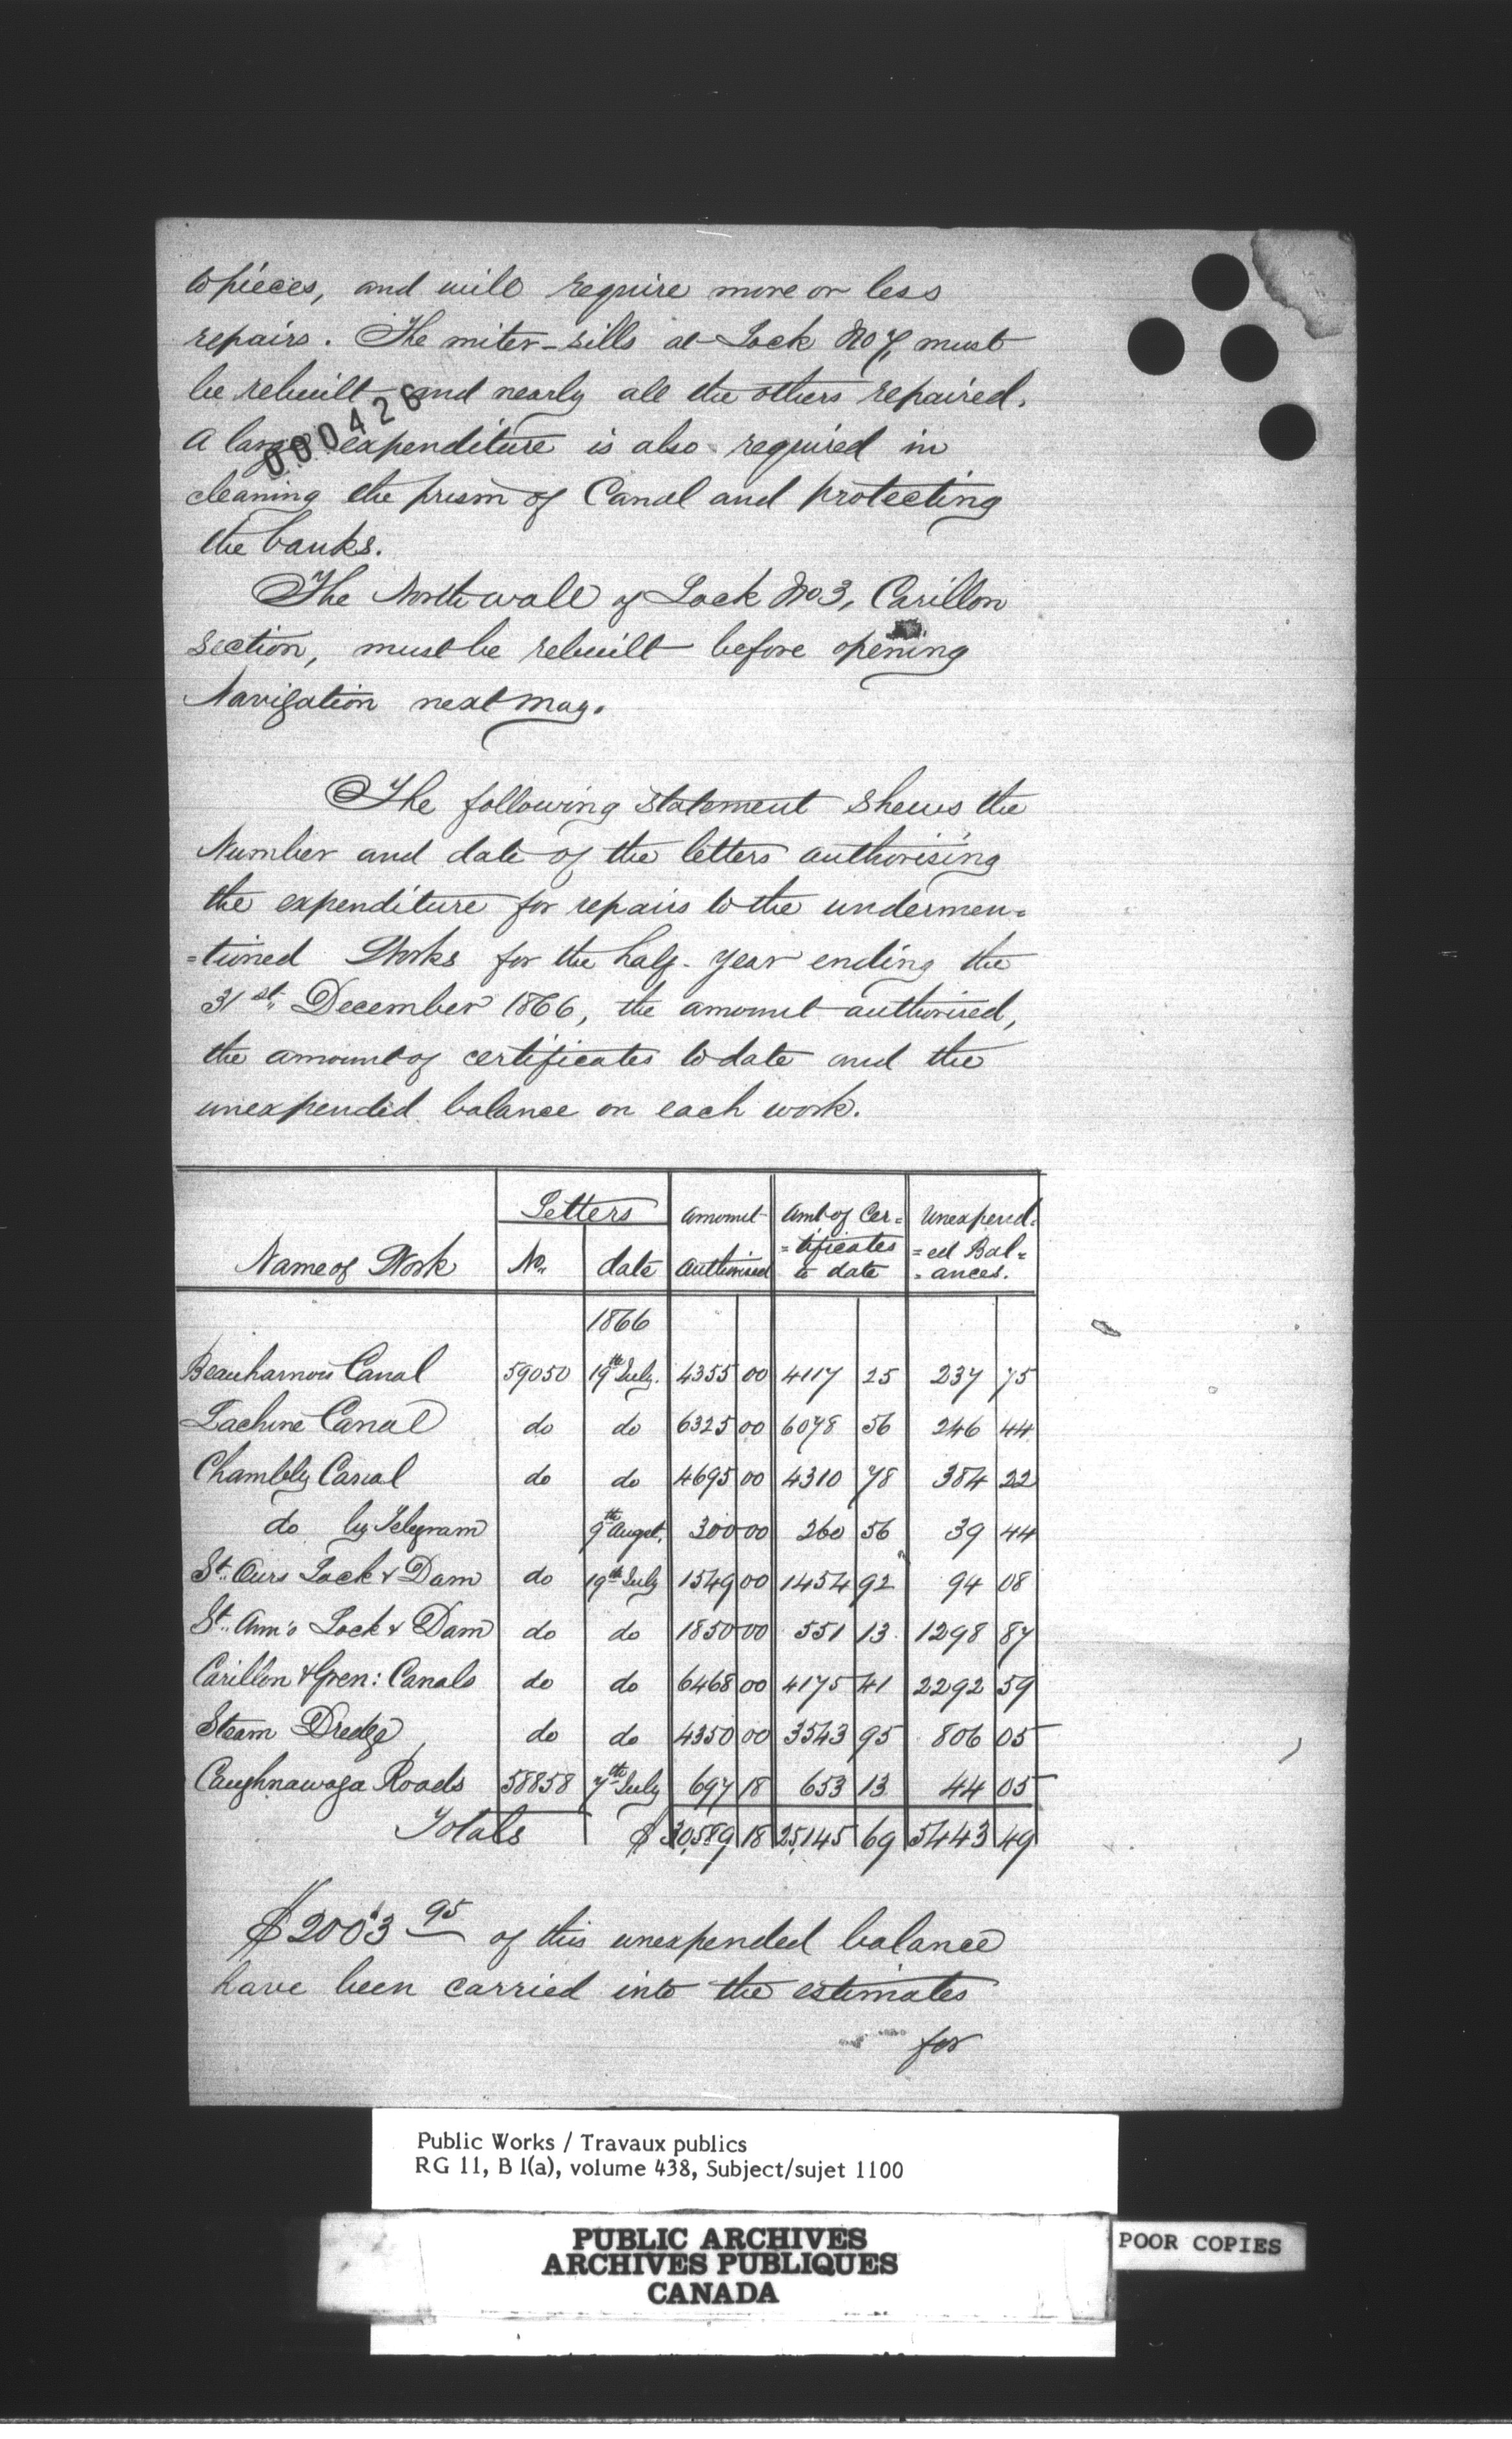 to pieces, and will require more or less
repairs. The miter-sills at Lock No 7, must
be rebuilt and nearly all the others repaired.
000426
A large expenditure is also required in
cleaning the prism of Canal and protecting
the banks.
The North wall of Lock No 3, Carillon
section, must be rebuilt before opening
Navigation next May.
The following statement shews the
Number and date of the letters authorising
the expenditure for repairs to the undermen=
=tioned Works for the half-year ending the
31st December 1866, the amount authorised,
the amount of certificates to date and the
unexpended balance on each work.
Name of Work | Letters No. | date | Amount authorised | Amt of Cer=tificates to date | Unexpend=ed Bal=ances.
1866
Beauharnois Canal 59050 19th July. 4355 00 4117 25 237 75
Lachine Canal do do 6325 00 6078 56 246 44
Chambly Canal do do 4695 00 4310 78 384 22
do by Telegram 9th Augst. 300 00 260 56 39 44
St. Ours Lock & Dam do 19th July 1549 00 1454 92 94 08
St. Ann's Lock & Dam do do 1850 00 551 13 1298 87
Carillon & Gren: Canals do do 6468 00 4175 41 2292 59
Steam Dredge do do 4350 00 3543 95 806 05
Caughnawaga Roads 58858 7th July 697 18 653 13 44 05
Totals $ 30,589 18 25,145 69 5443 49
$2003 95 of this unexpended balance
have been carried into the estimates
for
Public Works / Travaux publics
RG 11, B 1(a), volume 438, Subject/sujet 1100
PUBLIC ARCHIVES
ARCHIVES PUBLIQUES
CANADA
POOR COPIES